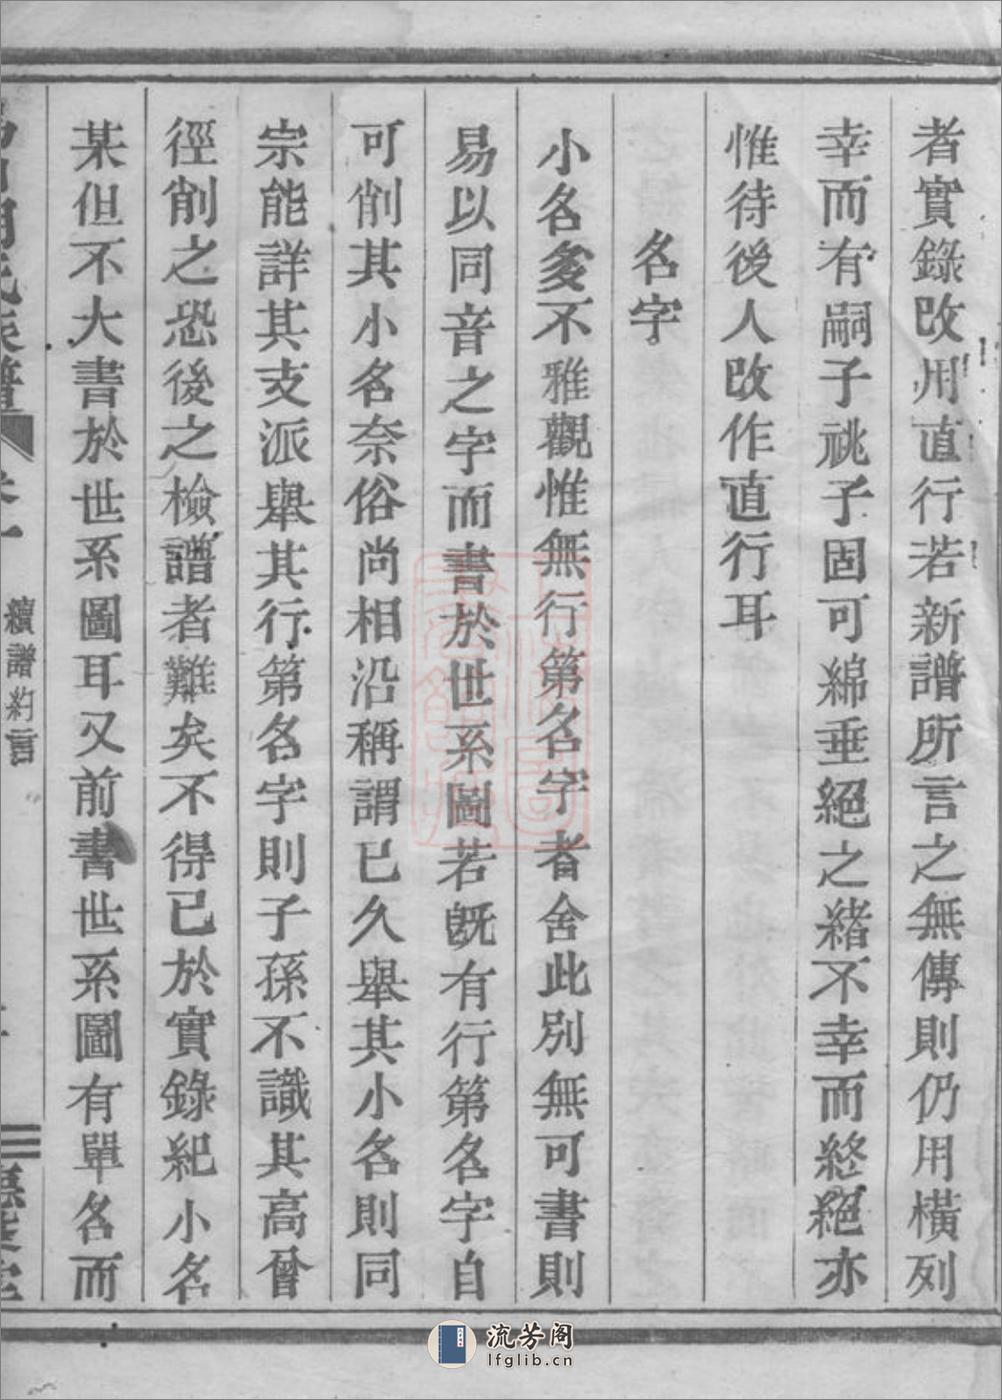 者實錄改用直行若新譜所言之無傳則仍用橫列
幸而有嗣子祧子固可綿垂絕之緒不幸而終絕亦
惟待後人改作直行耳
名字
小名多不雅觀惟無行第名字者舍此別無可書則
易以同音之字而書於世系圖若既有行第名字自
可削其小名奈俗尚相沿稱謂已久舉其小名則同
宗能詳其支派舉其行第名字則子孫不識其高曾
徑削之恐後之檢譜者難矣不得已於實錄紀小名
某但不大書於世系圖耳又前書世系圖有單名而
續譜約言
流芳阁
lfglib.cn